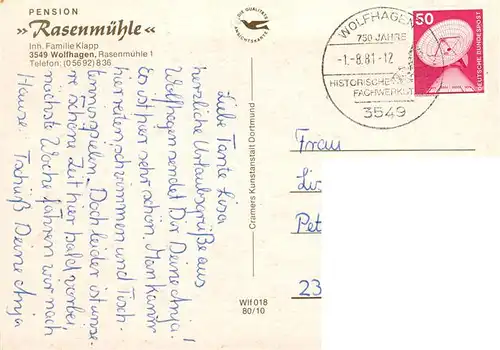 PENSION
»Rasenmühle«
Inh. Familie Klapp
3549 Wolfhagen, Rasenmühle 1
Telefon: (05692) 836
Liebe Tante Lisa
herzliche Urlaubsgrüße aus
Wolfhagen sendet Dir Deine Anja!
Es ist hier sehr schön. Man kann
hier reiten, schwimmen und Tisch-
tennis spielen. Doch leider ist unse-
re schöne Zeit hier bald vorbei,
nächste Woche fahren wir nach
Hause. Tschüß Deine Anja
DIE QUALITÄTS
ANSICHTSKARTE
Cramers Kunstanstalt Dortmund
Wlf 018
80/10
WOLFHAGEN
750 JAHRE
-1.-8.81-12
HISTORISCHE
FACHWERKST
3549
50
DEUTSCHE BUNDESPOST
Frau
Li
Pet
23